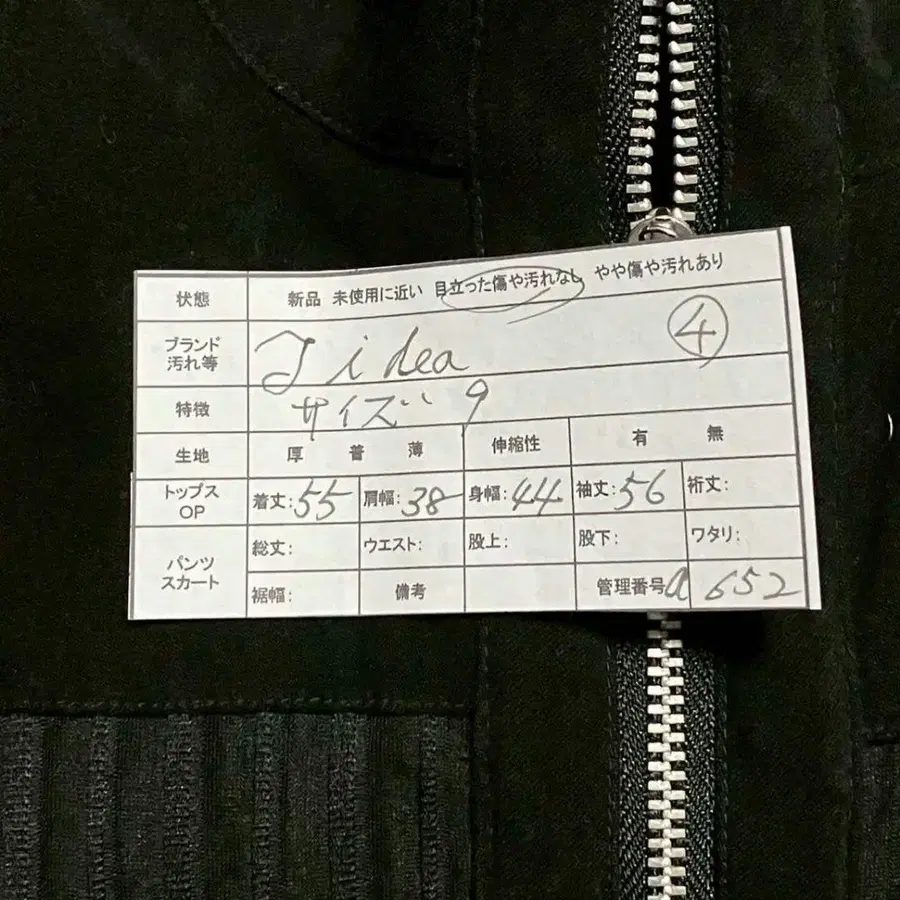 状態 新品 未使用に近い 目立った傷や汚れなし やや傷や汚れあり
ブランド 汚れ等 J idea ④
特徴 サイズ 9
生地 厚 普 薄 伸縮性 有 無
トップス OP 着丈:55 肩幅:38 身幅:44 袖丈:56 裄丈:
パンツ スカート 総丈: ウエスト: 股上: 股下: ワタリ:
裾幅: 備考 管理番号 a 652